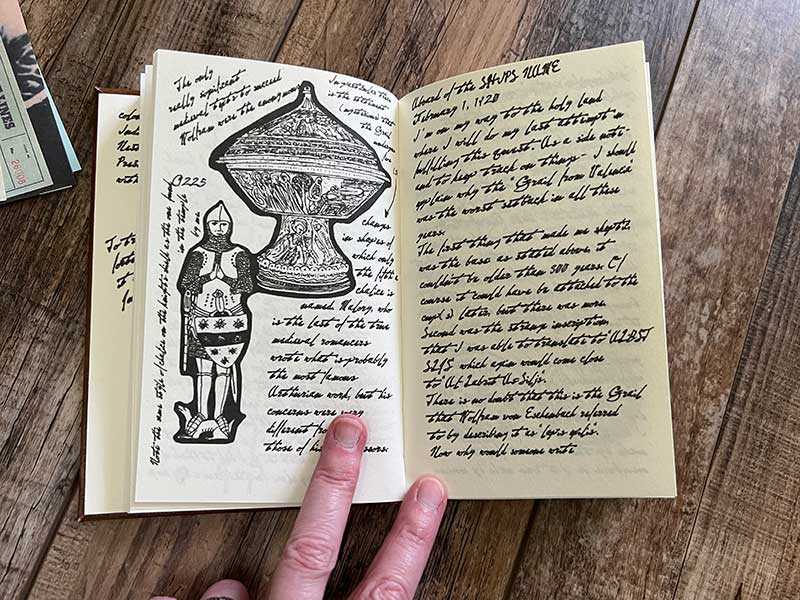 The only
really significant
medieval texts to succeed
Wolfram were the anonymous
is the statement
the Grail
changes
in shapes of
which only
the fifth
chalice is
named. Malory, who
is the last of the true
medieval romancers
wrote what is probably
the most famous
Arthurian work, but his
concerns were very
different fro
those of his ssors.
1225
in the temple
by me
Note the same style of chalice on the knight's shield as the one found
Aboard of the SHIPS NAME
February 1, 1920
I'm on my way to the holy land
where I will do my last attempt in
fulfilling this quest. As a side note-
and to keep track on things - I should
explain why the "Grail from Valencia"
was the worst setback in all these
years.
The first thing that made me skeptic
was the base as stated above it
couldn't be older than 500 years. Of
course it could have be attached to the
cup(s) later, but there was more.
Second was the strange inscription,
that I was able to translate to
which again would come close
to
There is no doubt that this is the Grail
that Wolfram von Eschenbach referred
to by describing it as "lapis exilis".
Now why would someone write